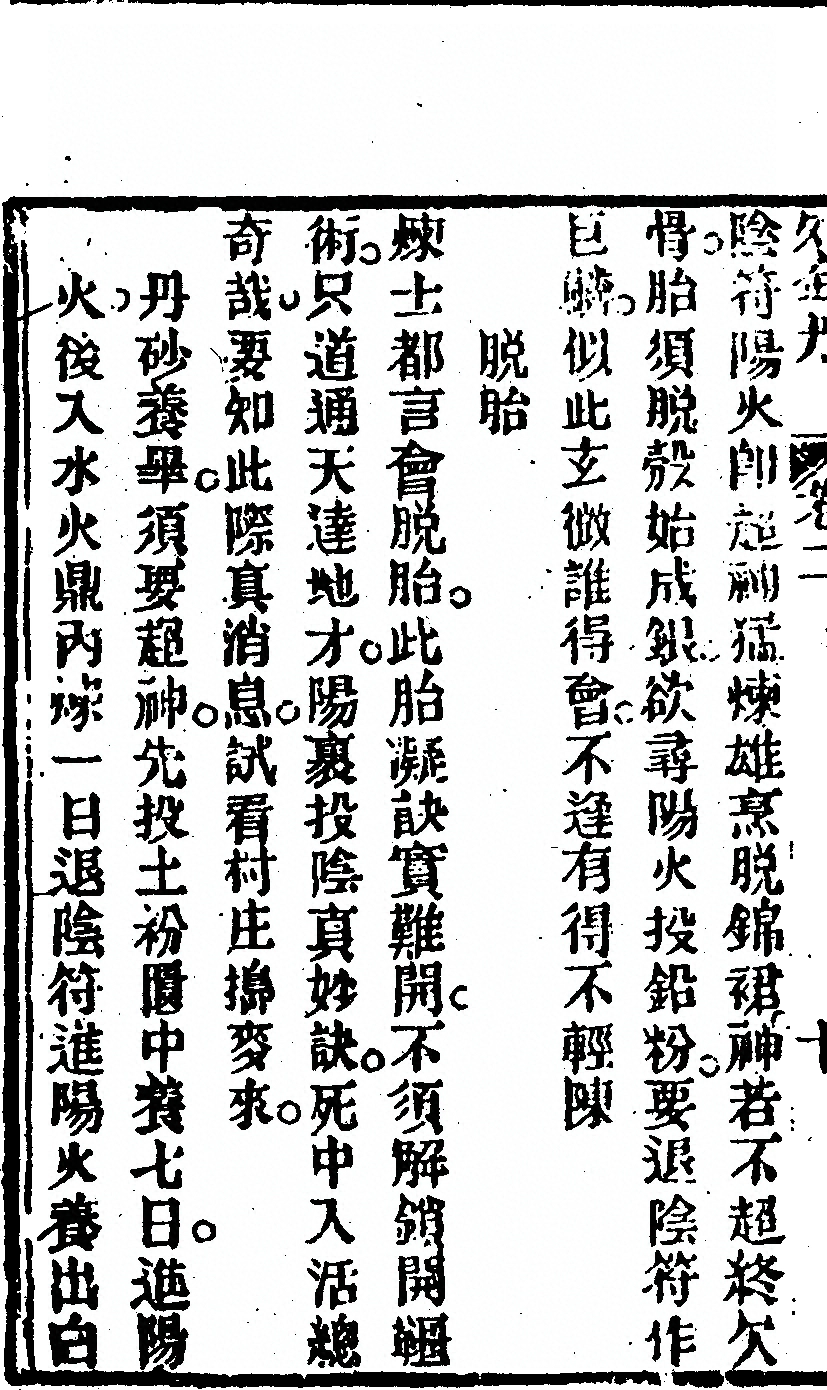 卷二 十
陰符陽火即超神猛煉雄烹脱錦裙神若不超終欠
骨胎須脱殼始成銀欲尋陽火投鉛粉要退陰符作
巨似此玄微誰得會不逢有得不輕陳
脱胎
煉士都言會脱胎此胎凝訣實難開不須解鎖開
術只道通天達地才陽裹投陰真妙訣死中入活總
奇哉要知此際真消息試看村庄搗麥來
丹砂養畢須要超神先投土粉匱中養七日進陽
火後入水火鼎内煉一日退陰符進陽火養出白